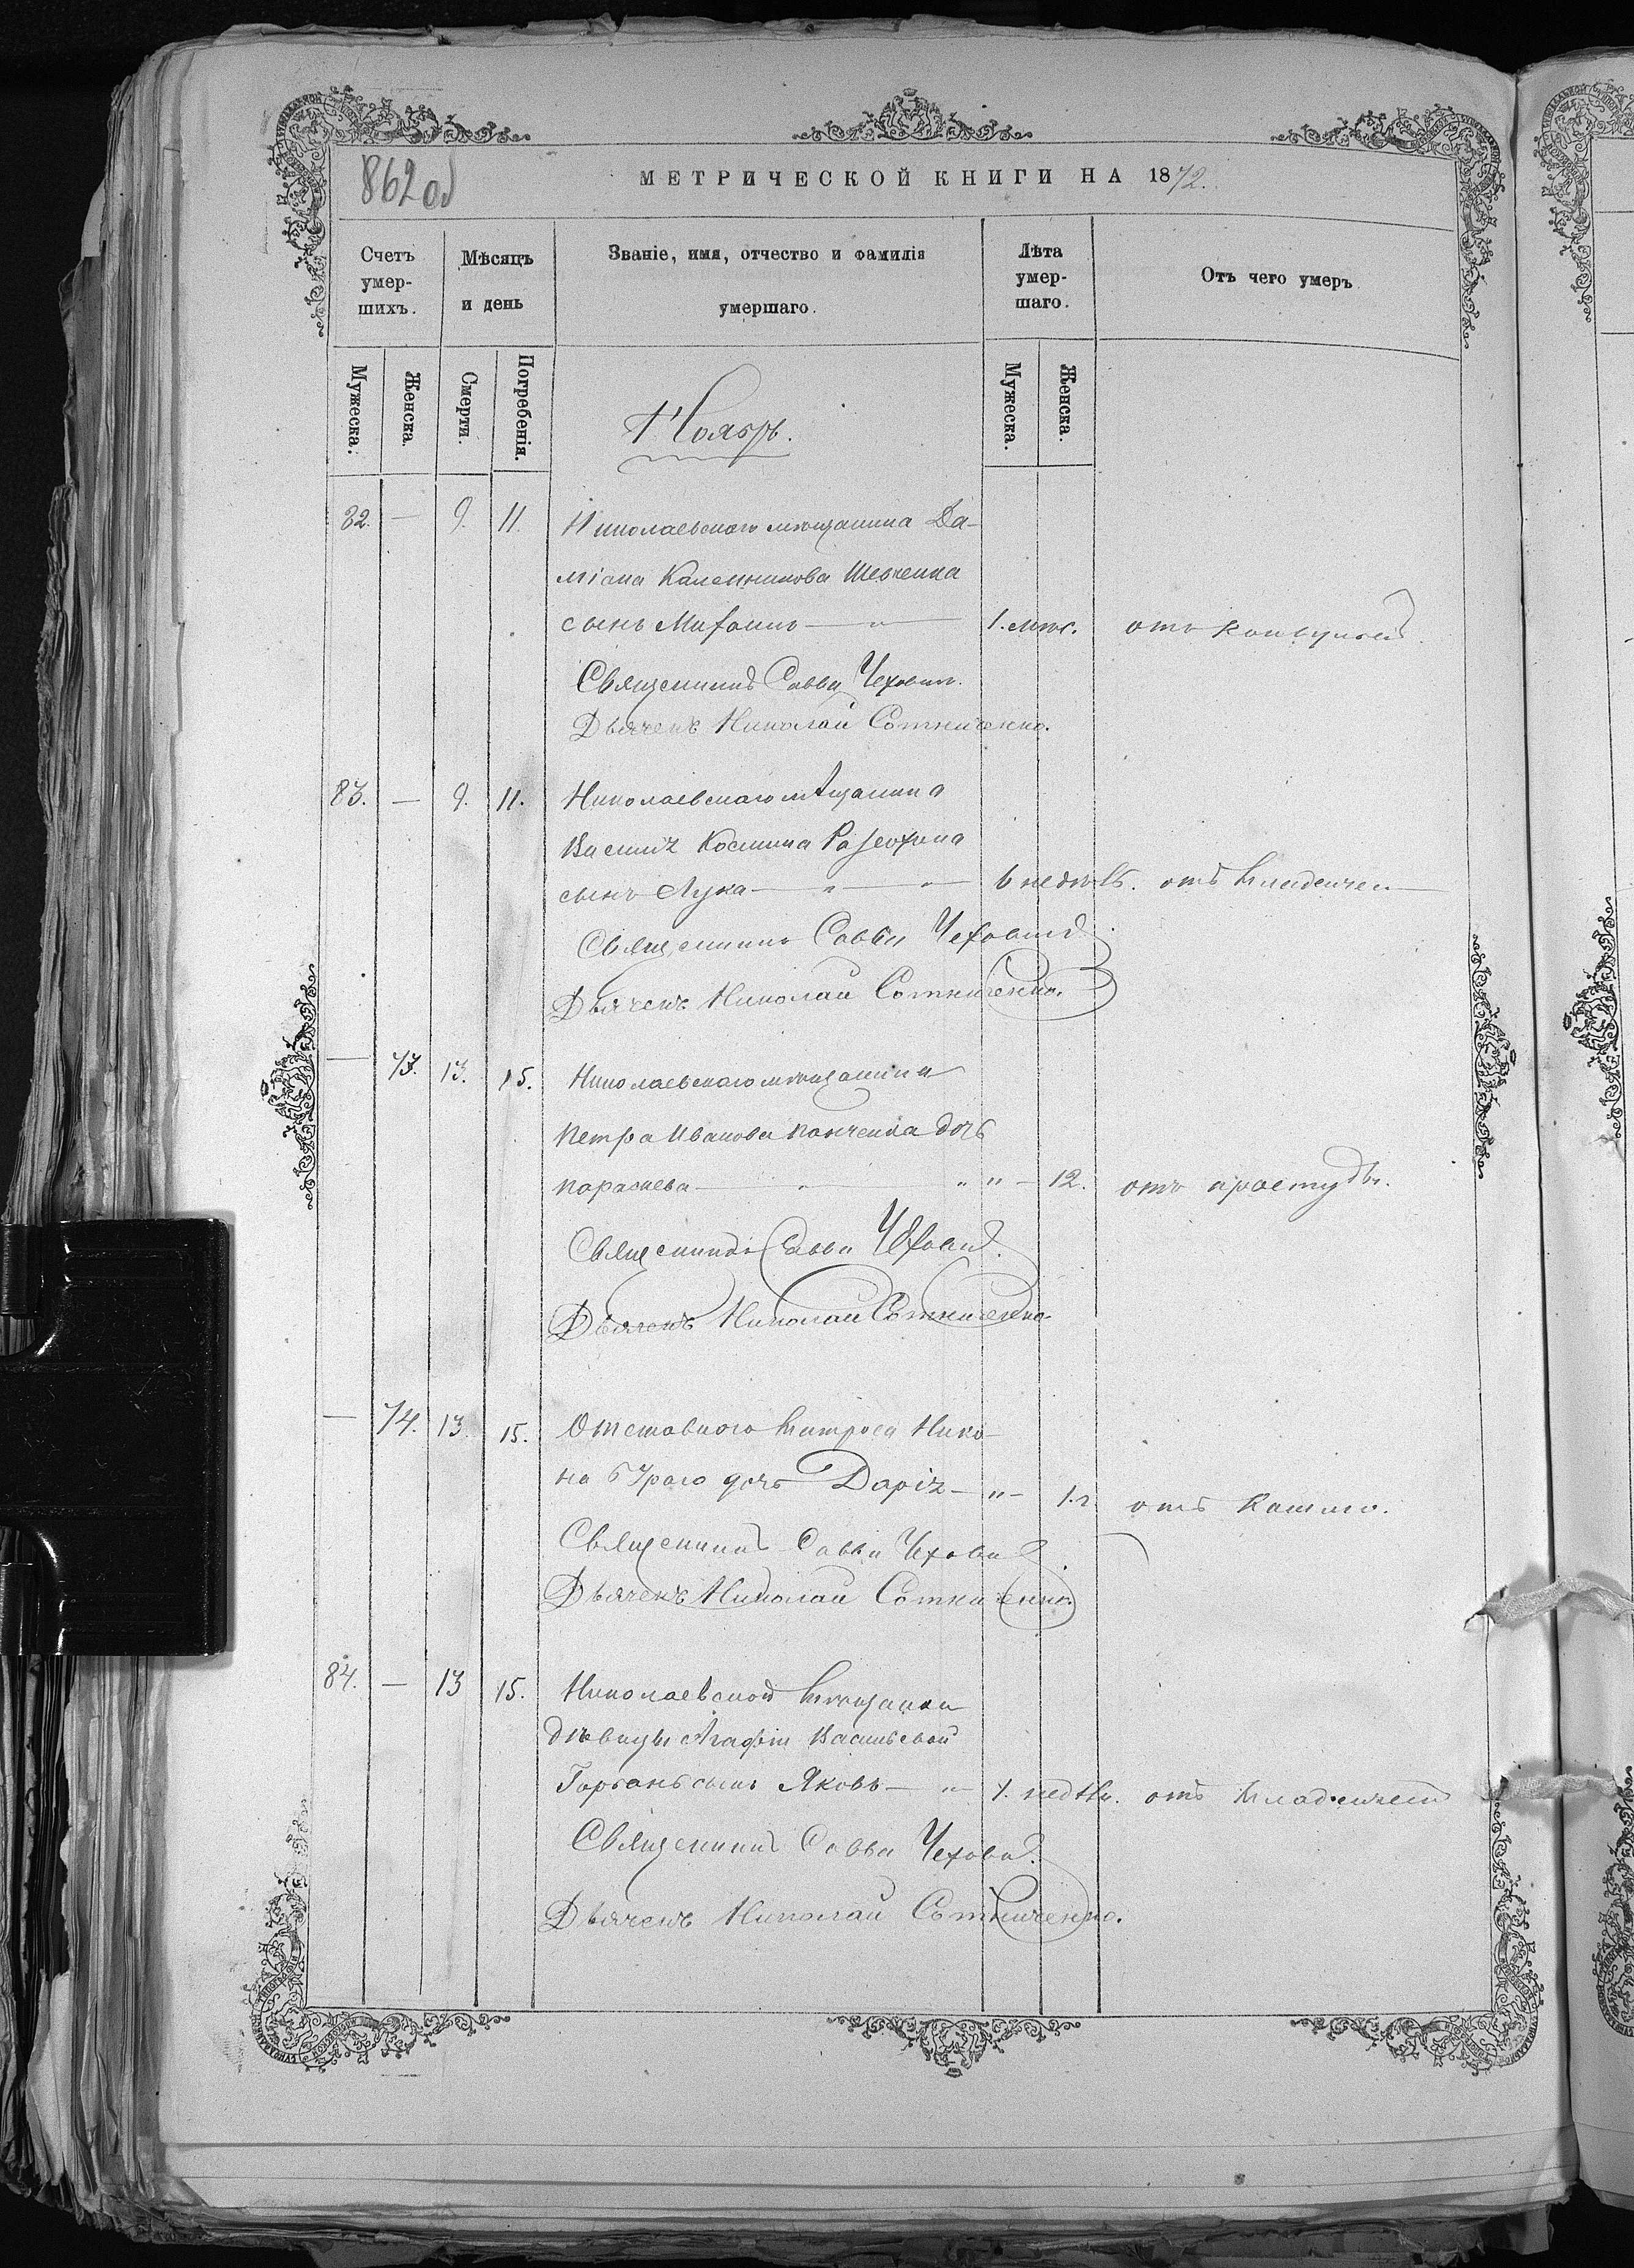 862 об
МЕТРИЧЕСКОЙ КНИГИ НА 1872.
Счетъ умер-шихъ. Мѣсяцъ и день Званіе, имя, отчество и фамилія умершаго. Лѣта умер-шаго. Отъ чего умеръ
Мужеска. Женска. Смерти. Погребенія. Мужеска. Женска.
Ноябрь.
82. — 9. 11. Николаевскаго мѣщанина Да-
міана Каленникова Шевченка
сынъ Митрофанъ — " — 1. мѣс. отъ конвульсій.
Священникъ Савва Чеховичъ.
Дьячекъ Николай Сотниченко.
83. — 9. 11. Николаевскаго мѣщанина
Василія Космина
сынъ Лука — " — " — 6 недѣль. отъ младенчес—
Священникъ Савва Чеховичъ
Дьячекъ Николай Сотниченко.
— 73. 13. 15. Николаевскаго мѣщанина
Петра Иванова Панченка дочь
Параскева — " — " " — 12. отъ простуды.
Священникъ Савва Чеховичъ.
Дьячекъ Николай Сотниченко
— 74. 13. 15. Отставного матроса Нико-
на дочь Дарія — " — 1. г. отъ кашлю.
Священникъ Савва Чеховичъ
Дьячекъ Николай Сотниченко.
84. — 13 15. Николаевской мѣщанки
дѣвицы Агафіи Васильевой
сынъ Яковъ — " — 1. недѣли. отъ младенчест
Священникъ Савва Чеховичъ.
Дьячекъ Николай Сотниченко.